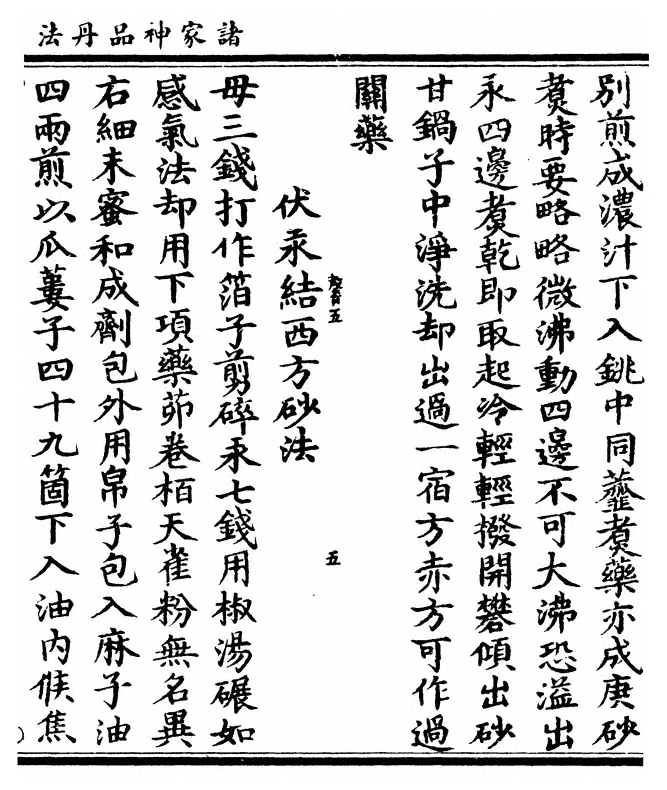 諸家神品丹法
別煎成濃汁下入銚中同虀煑藥亦成庚砂
煑時要略略微沸動四邊不可大沸恐溢出
汞四邊煑乾即取起冷輕輕撥開礬傾出砂
甘鍋子中淨洗却出過一宿方赤方可作過
關藥
伏汞結西方砂法
五
母三錢打作箔子剪碎汞七錢用椒湯碾如
感氣法却用下項藥茆卷栢天雀粉無名異
右細末蜜和成劑包外用帛子包入麻子油
四兩煎以瓜蔞子四十九箇下入油内候焦